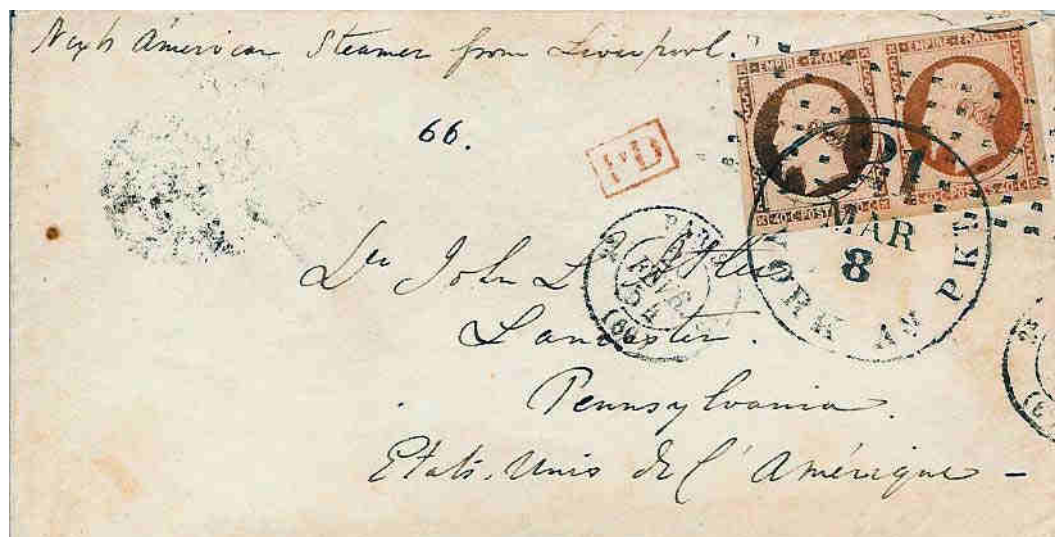 Next American Steamer from Liverpool.
66.
PD
EMPIRE FRANC EMPIRE FRANC
40 C POSTES 40 C 40 C POSTES 40 C
21
MAR
8
YORK AM PKT
PARIS
FEVR
54
(60)
Dr John L. Atlee
Lancaster.
Pennsylvania.
Etats. Unis de l'Amérique –